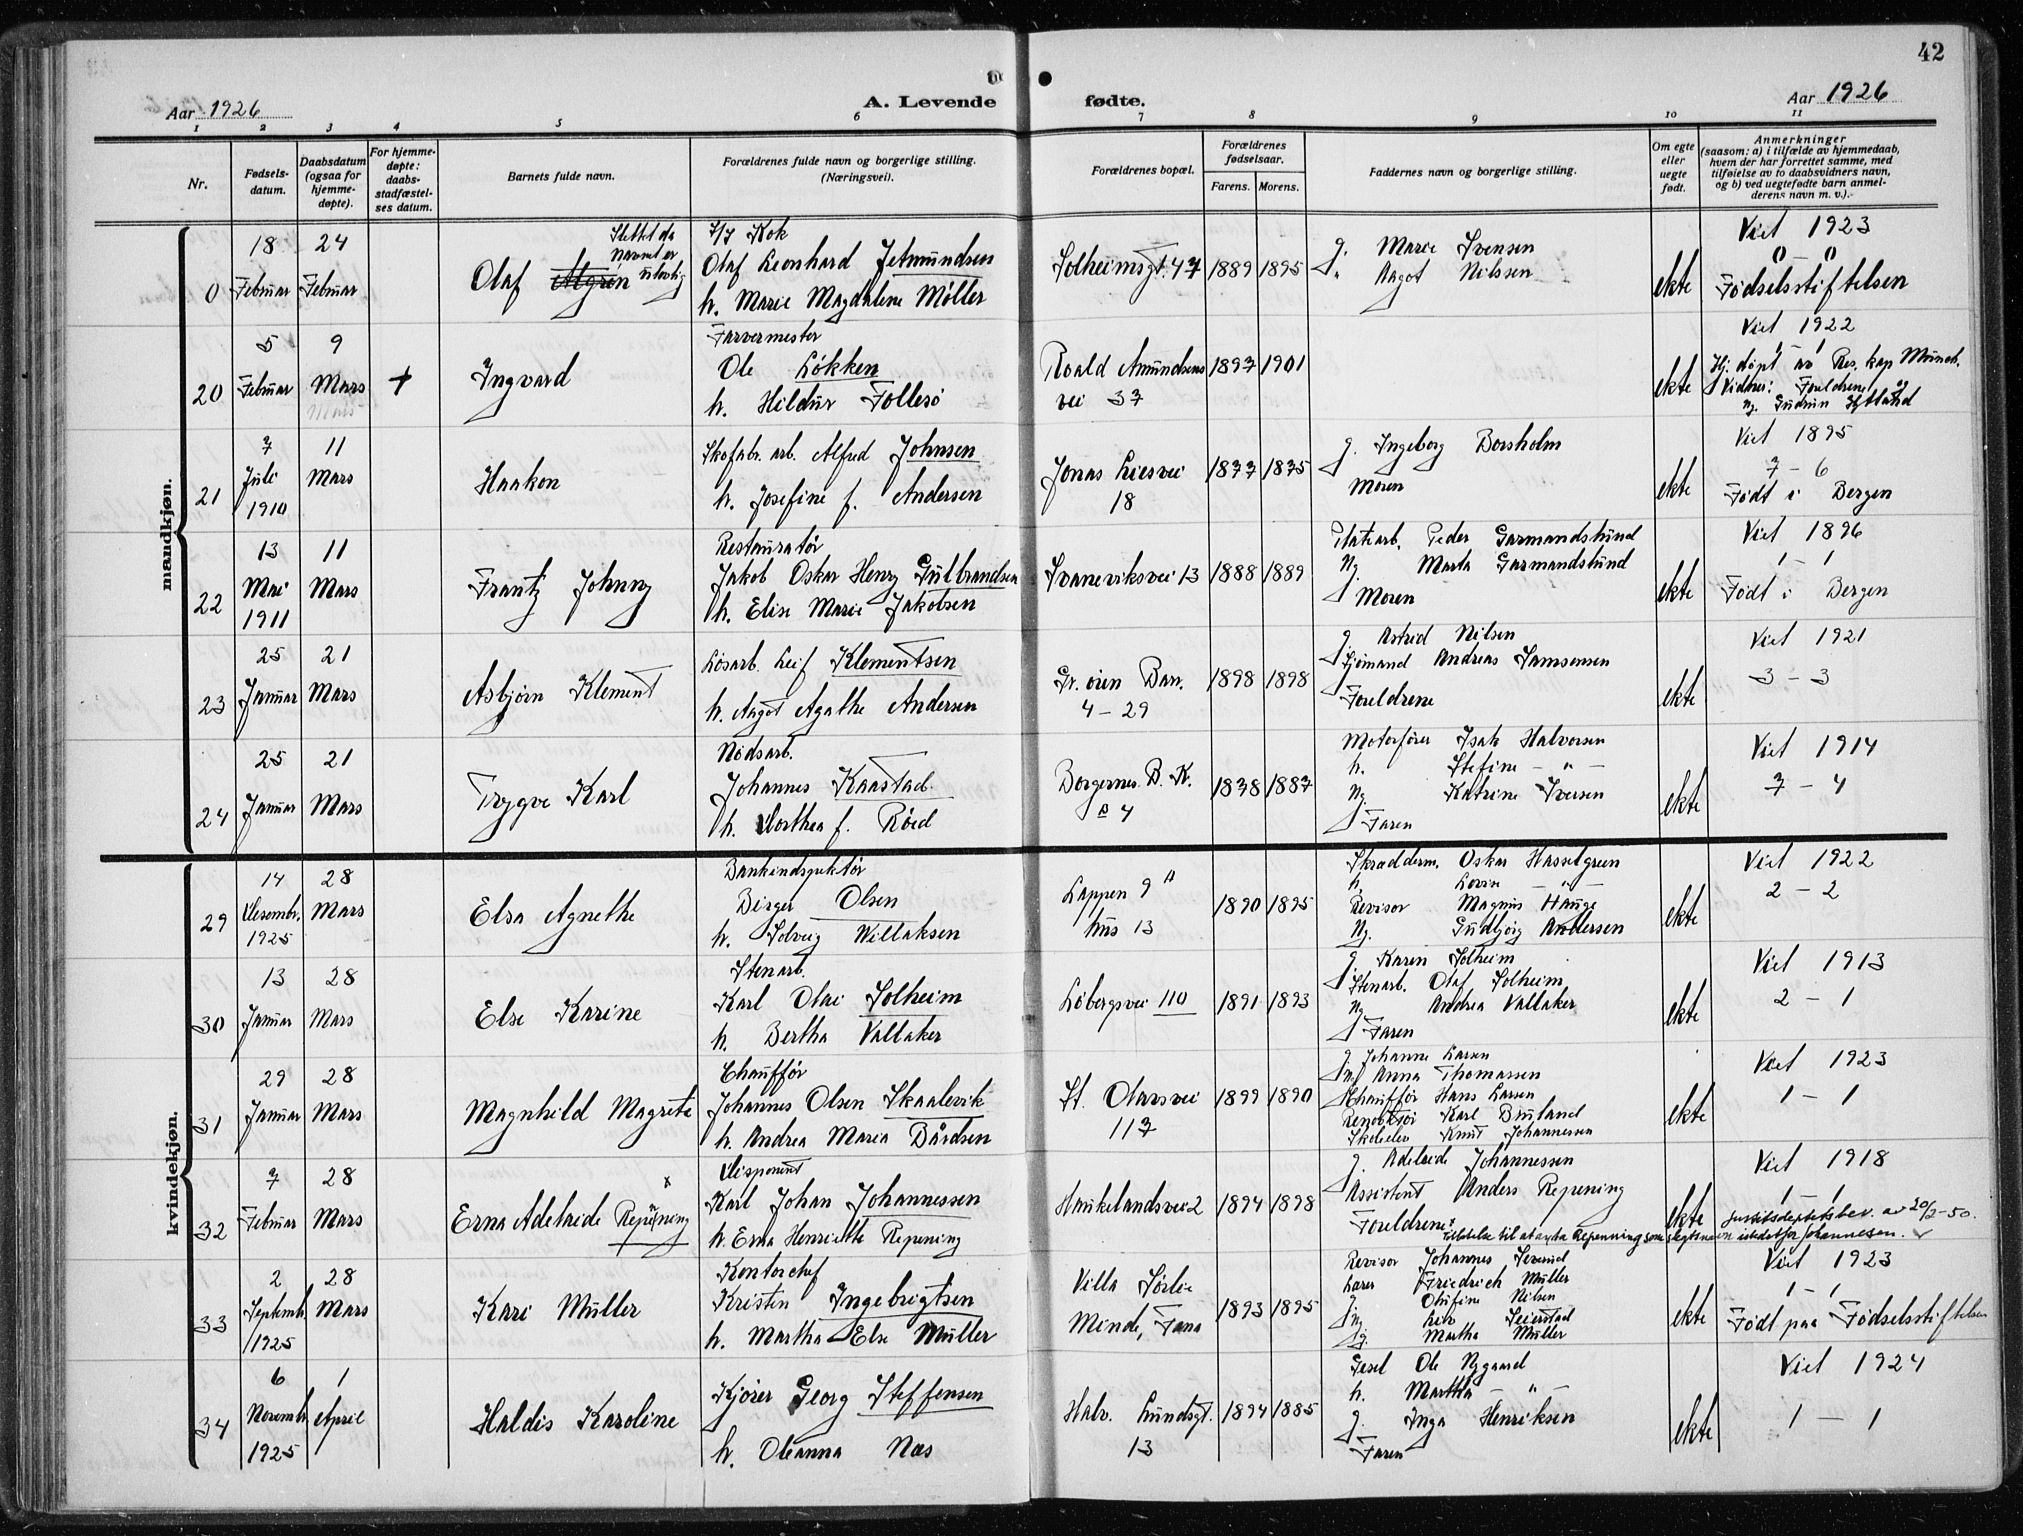 42
Aar 1926
A. Levende
fødte.
Aar 1926
1 2 3 4 5 6 7 8 9 10 11
Nr.
Fødsels-
datum.
Daabsdatum
(ogsaa for
hjemme-
døpte).
For hjemme-
døpte:
daabs-
stadfæstel-
ses datum.
Barnets fulde navn.
Forældrenes fulde navn og borgerlige stilling.
(Næringsvei).
Forældrenes bopæl.
Forældrenes
fødselsaar.
Farens. Morens.
Faddernes navn og borgerlige stilling.
Om egte
eller
uegte
født.
Anmerkninger
(saasom: a) i tilfælde av hjemmedaab,
hvem der har forrettet samme, med
tilføielse av to daabsvidners navn,
og b) ved uegtefødte barn anmel-
derens navn m. v.).
mandkjøn.
0
18
Februar
24
Februar
Olaf Algren
Slettet da
navnet er
ulovlig
S/J Kok
Olaf Leonhard Jetmundsen
h. Marie Magdalene Møller
Solheimsgt. 47
1889 1895
J. Marie Svensen
" Aagot Nilssen
ekte
Viet 1923
0 – 0
Fødselsstiftelsen
20
5
Februar
9
Mars
+
Ingvard
Farvermester
Ole Løkken
h. Hildur Follesø
Roald Amundsens
vei 37
1897 1901
ekte
Viet 1922
1 – 1
Hj. døpt av Res. kap Munch.
Vidner: Foreldrene og
Ng. Gudrun Hjtland
21
7
Juli
1910
11
Mars
Haakon
Skofabr. arb. Alfred Johnsen
h. Josefine f. Andersen
Jonas Liesvei
18
1877 1875
J. Ingeborg Borsholm
Moren
ekte
Viet 1895
7 – 6
Født i Bergen
22
13
Mai
1911
11
Mars
Frantz Johnny
Restauratør
Jakob Oskar Henry Gulbrandsen
h. Elise Marie Jakobsen
Svaneviksvei 13
1888 1889
Platearb. Peder Garmandslund
Ng. Marta Garmandslund
Moren
ekte
Viet 1896
1 – 1
Født i Bergen
23
25
Januar
21
Mars
Asbjørn Klement
Løsarb. Leif Klementsen
h. Aagot Agathe Andersen
Gr. øien Barr.
4 – 29
1898 1898
J. Astrid Nilsen
Sjömand Andreas Samsonsen
Foreldrene
ekte
Viet 1921
3 – 3
24
25
Januar
21
Mars
Trygve Karl
Nødsarb.
Johannes Kaastad
h. Dorthea f. Røed
Borgernes B. K.
B 4
1878 1887
Motorfører Isak Halvorsen
h. Stefine – " –
Ng. Katrine Iversen
Faren
ekte
Viet 1914
7 – 4
kvindekjøn.
29
14
Desembr.
1925
28
Mars
Elsa Agnethe
Bankindspektør
Birger Olsen
h. Solveig Willaksen
Lappen 9 "
hus 13
1890 1895
Skradderm. Oskar Hasselgreen
h. Lovin – " –
Revisor Magnus Hauge
Ng. Gudbjørg Andersen
ekte
Viet 1922
2 – 2
30
13
Januar
28
Mars
Else Karine
Stenarb.
Karl Olai Solheim
h. Bertha Vallaker
Løbergsvei 110
1891 1893
J. Karen Solheim
Stenarb. Olaf Solheim
Ng Andrea Vallaker
Faren
ekte
Viet 1913
2 – 1
31
29
Januar
28
Mars
Magnhild Magrete
Chaufför
Johannes Olsen Skaalevik
h. Andrea Maria Bårdsen
St. Olavsvei
117
1899 1890
J. Johanne Larsen
Ng Anna Thomassen
Chaufför Hans Larsen
Karl Bruland
Skoleelev Knut Johannessen
ekte
Viet 1923
1 – 1
32
7
Februar
28
Mars
Erna Adelaide Repening
Disponent
Karl Johan Johannessen
h. Erna Henriette Repening
Haukelandsvei 2
1894 1898
J. Adelaide Johannessen
Assistent Anders Repening
Foreldrene
ekte
Viet 1918
1 – 1
Justitsdeptets bev. av 20/2-50.
Tillatelse til at anta Repenning som slegtsnavn istedetfor Johannessen.
33
2
Septembr.
1925
28
Mars
Kari Müller
Kontorchef
Kristen Ingebrigtsen
h. Martha Else Müller
Villa Sørlie
Minde, Fana
1893 1895
Revisor Johannes Severud
Lærer Friedrich Müller
J. Olufine Nilsen
Ng Liv Seierstad
J. Martha Müller
ekte
Viet 1923
1 – 1
Født paa Fødselsstiftelsen
34
6
Novembr
1925
1
April
Haldis Karoline
Kjører Georg Steffensen
h. Oleanna Næs
Halv. Lundsgt.
13
1894 1885
Gesel Ole Nygaard
h. Martha – " –
J. Inga Henriksen
Faren
ekte
Viet 1924
1 – 1